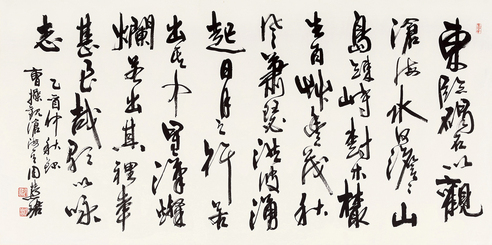 東臨碣石以觀
滄海水何澹澹山
島竦峙樹木叢
生百草豐茂秋
風蕭瑟洪波湧
起日月之行若
出其中星漢燦
爛若出其裡幸
甚至哉歌以咏
志
乙酉仲秋錄
曹操觀滄海